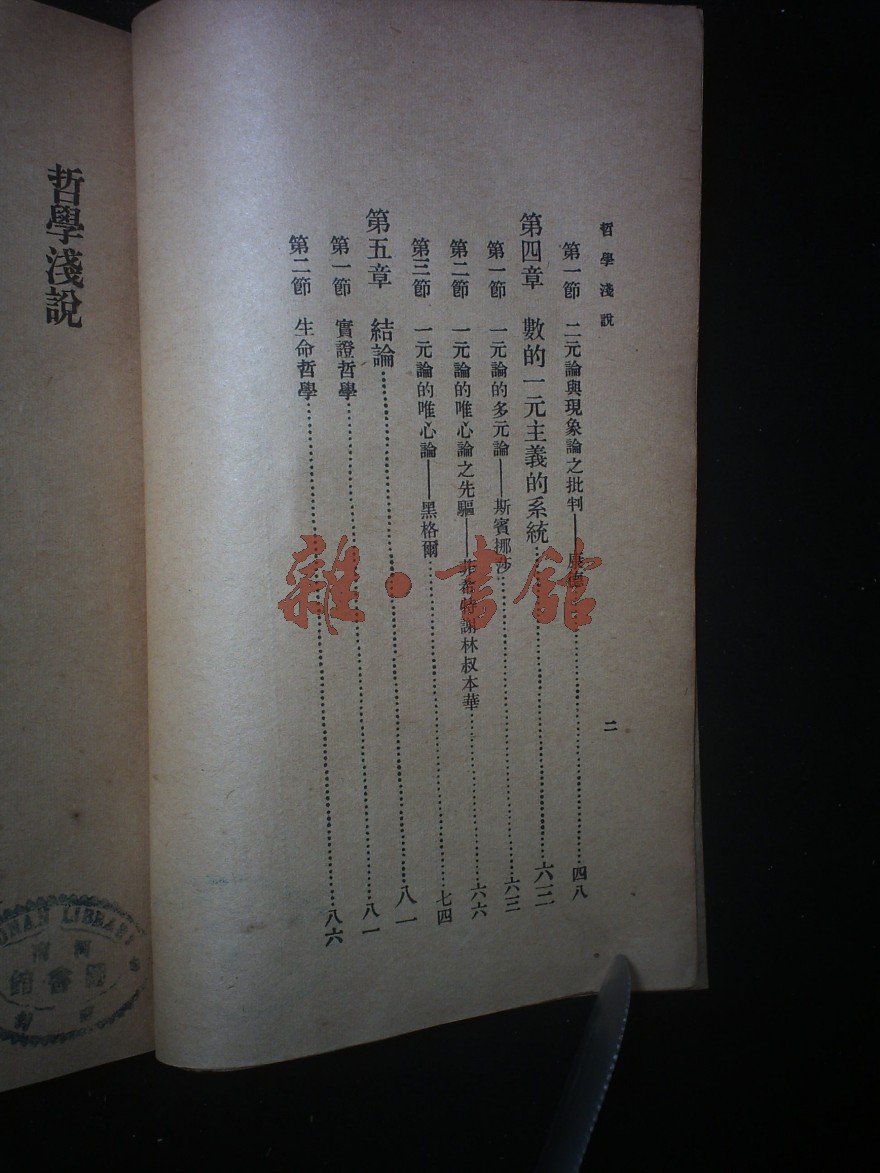 哲學淺說
二
第一節 二元論與現象論之批判——康德……四八
第四章 數的一元主義的系統……六三
第一節 一元論的多元論——斯賓挪莎……六三
第二節 一元論的唯心論之先驅——菲希特謝林叔本華……六六
第三節 一元論的唯心論——黑格爾……七四
第五章 結論……八一
第一節 實證哲學……八一
第二節 生命哲學……八六
哲學淺說
雜·書館
LIBRARY